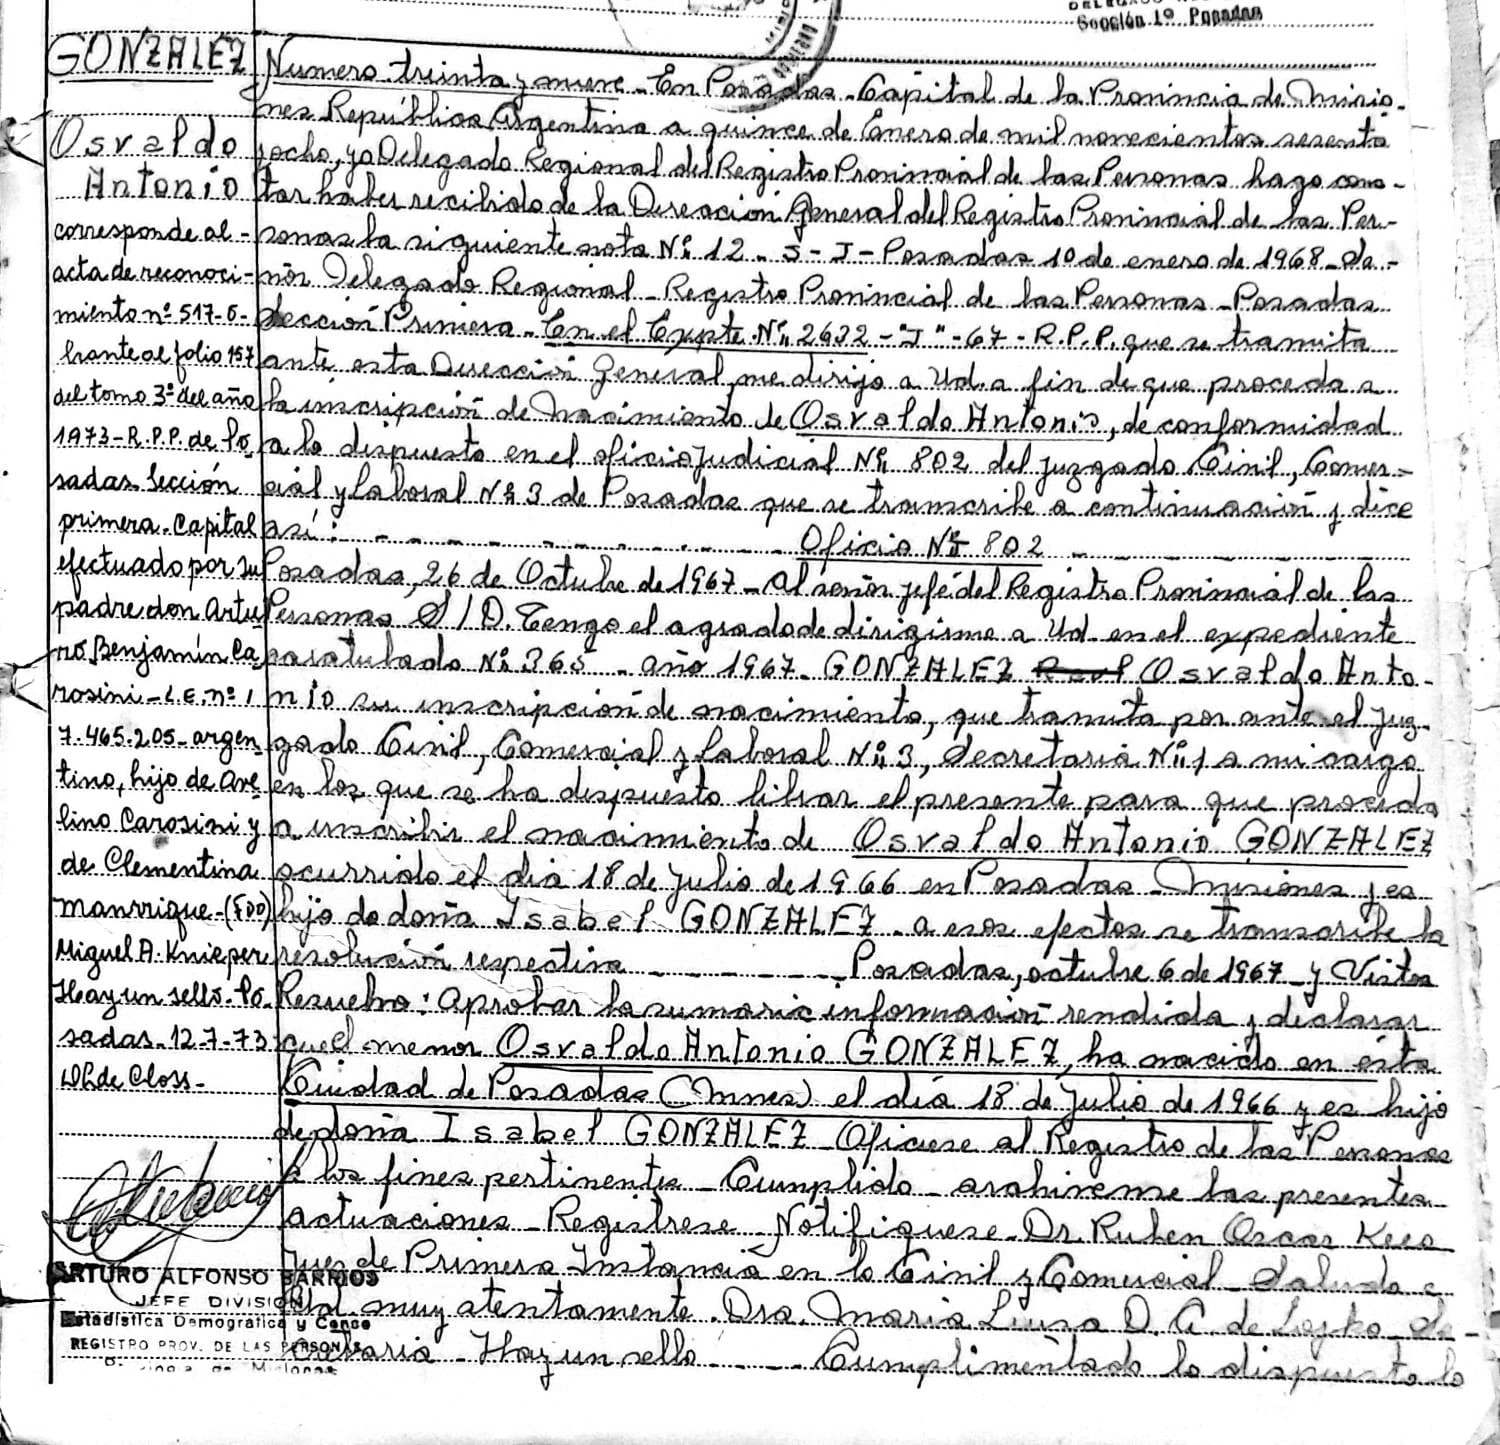 Sección 1º Posadas
GONZALEZ
Osvaldo
Antonio
corresponde al-
acta de reconoci-
miento nº 517-o-
brante al folio 157
del tomo 3º del año
1973-R.P.P. de Po-
sadas. Sección
primera. Capital
efectuado por su
padre don Artu-
ro Benjamín Ca-
rosini-L.E. nº
7.465.205-argen-
tino, hijo de Ave-
lino Carosini y
de Clementina
Manrrique-(FDO)
Miguel A. Knieper
Hay un sello. Po-
sadas-12-7-73
de Closs-
ARTURO ALFONSO BARRIOS
JEFE DIVISION
Estadística Demográfica y Censo
REGISTRO PROV. DE LAS PERSONAS
Numero treinta y nueve-En Posadas-Capital de la Provincia de Misio-
nes República Argentina a quince de Enero de mil novecientos sesenta
y ocho, yo Delegado Regional del Registro Provincial de las Personas hago cons-
tar haber recibido de la Dirección General del Registro Provincial de las Per-
sonas la siguiente nota Nº 12-S-J-Posadas 10 de enero de 1968-Se-
ñor Delegado Regional-Registro Provincial de las Personas-Posadas
Sección Primera-En el Expte. Nº 2632-"J"-67-R.P.P. que se tramita
ante esta Dirección General, me dirijo a Ud. a fin de que proceda a
la inscripción de nacimiento de Osvaldo Antonio, de conformidad
a lo dispuesto en el oficio Judicial Nº 802 del Juzgado Civil, Comer-
cial y Laboral Nº 3 de Posadas que se transcribe a continuación y dice
así: Oficio Nº 802
Posadas, 26 de Octubre de 1967-Al señor Jefe del Registro Provincial de las
Personas S/D. Tengo el agrado de dirigirme a Ud. en el expediente
caratulado Nº 365-año 1967-GONZALEZ Osvaldo Anto-
nio su inscripción de nacimiento, que tramita por ante el Juz-
gado Civil, Comercial y Laboral Nº 3, Secretaria Nº 1 a mi cargo
en los que se ha dispuesto librar el presente para que proceda
a inscribir el nacimiento de Osvaldo Antonio GONZALEZ
ocurrido el día 18 de Julio de 1966 en Posadas-Misiones y es
hijo de doña Isabel GONZALEZ-a esos efectos se transcribe la
resolución respectiva Posadas, octubre 6 de 1967-y Vistos
Resuelvo: Aprobar la sumaria información rendida y declarar
que el menor Osvaldo Antonio GONZALEZ, ha nacido en ésta
Ciudad de Posadas (Mnes) el día 18 de Julio de 1966 y es hijo
de doña Isabel GONZALEZ-Ofíciese al Registro de las Personas
a los fines pertinentes-Cumplido-archívense las presentes
actuaciones-Regístrese-Notifíquese-Dr. Ruben Oscar
Juez de Primera Instancia en lo Civil y Comercial-Saludo a
Ud. muy atentamente. Dra. Maria Luisa D. G. de Lojko-Se-
cretaria-Hay un sello Cumplimentado lo dispuesto lo